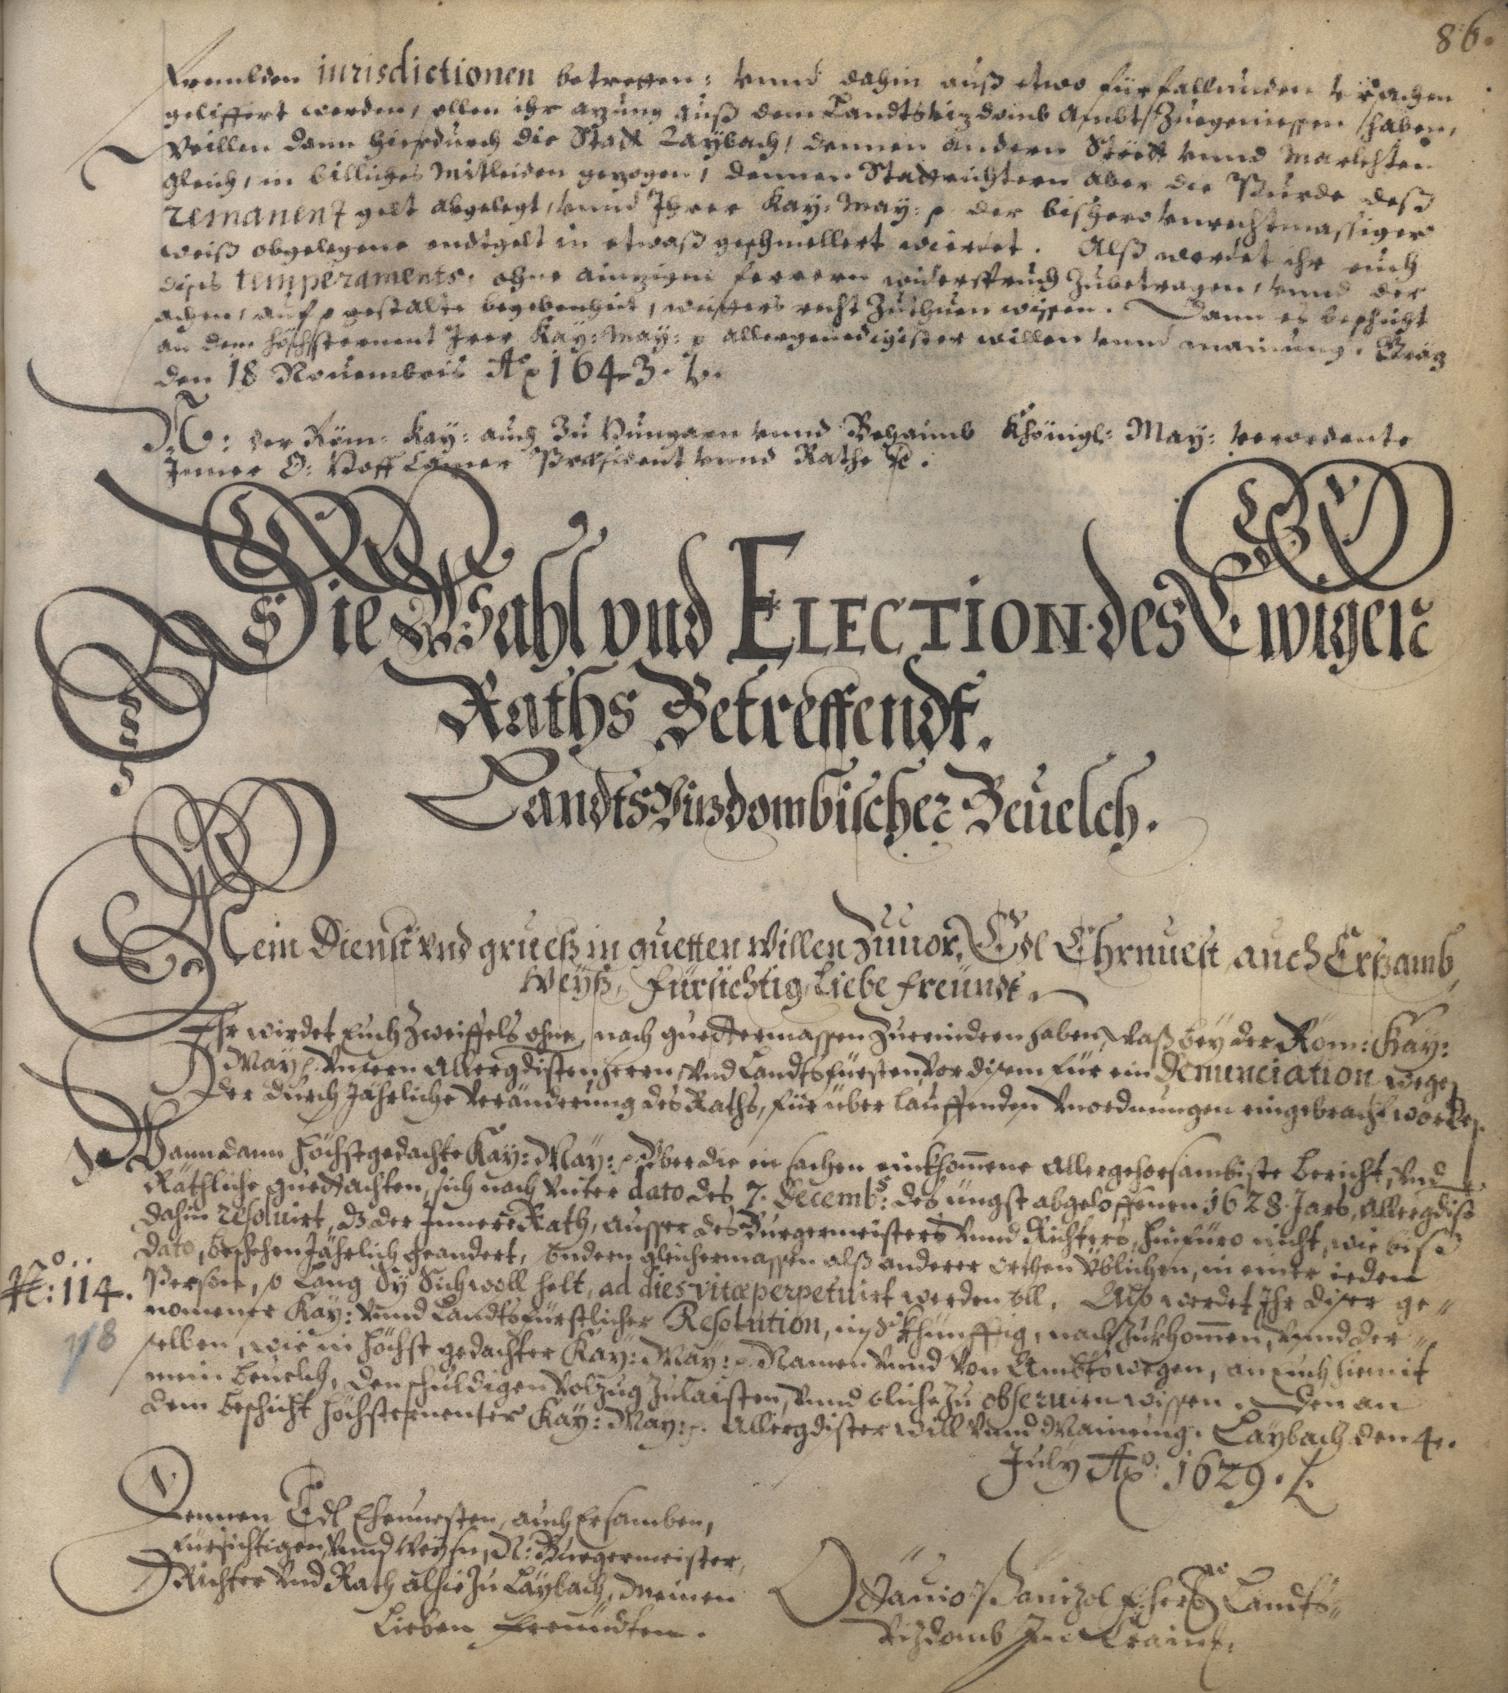 86.
frembden iurisdictionen betreffen: vnnd dahin auß etwo fürfallunden vrsachen
geliffert werden, ollen ihr azung auß dem Landtsvizdomb Ambt Zuegeniessen haben,
Weillen dann hierdurch die Statt Laybach, dennen andern Stött vnnd Marckhten
gleich, in billiches mitleiden gezogen, dennen Stattrichtern aber die Bürde deß
remanent gelt abgelegt, vnnd Ihrer Kay: May: p der bißhero vnrechtmassiger
weiß obgelegene endtgelt in etwaß geschmellert wierdet. Alß werdet ihr euch
dises temperaments, ohne ainzigen ferrern widerspruch Zubetragen, vnnd der
achen, auf gestalte begebenheit, weitters recht Zuthuen wissen. Dann es beschicht
an dem höchsternent Irer Kay: May: p allergenedigister willen vnnd mainung. Gräz
den 18 Nouembris Aō 1643.
N: der Röm: Kay: auch Zu Hungarn vnnd Behaimb Khönigl: May: verordente
Inner O: Hoff Camer Præsident vnnd Rathe
Die Wahl vnd ELECTION des Ewigen
Raths Betreffendt.
Landts Vitzdombischer Beuelch.
Mein Dienst vnd gruesz in guetten willen Zuuor, Edl Ehrnuest auch Ersamb,
Weÿsz, Fürsichtig, Liebe freündt
Ihr wirdet Euch Zweiffels ohne, nach guettermassen Zuerindern haben, waß beÿ der Röm: Kaÿ:
Maÿ: p. Vnsern Allergdisten herrn, vnd Landtsfürsten, Vor disem für ein Denunciation wegen
der durch Jährliche Veränderung des Raths, für über lauffenden Vnordnungen eingebracht worden.
Wann dann Höchstgedachte Kaÿ: Maÿ: p. Vber die in sachen einkhommene Allergehorsambiste bericht, Vnd
Räthliche guettachten, sich nach Vnter dato des 7. Decemb: des iüngst abgeloffenen 1628. Jars, Allergdist
dahin resoluirt, dz der Innere Rath, ausser des Burgermeisters Vnnd Richters, hinfüro nicht, wie biß
dato, beschehen Jährlich geandert, ondern gleichermassen alß anderer orthen Yblichen, in einer ieden
N:o 114. Person, o Lang Sÿ Sich woll helt, ad dies vitæ perpetuirt werden oll. Also werdet Ihr diser ge„
nomener Kaÿ: Vnnd Landtsfürstlicher Resolution, inskhünfftig, nachzukhommen, Vnnd der„
118
selben, wie in Höchst gedachter Kaÿ: Maÿ: p. Namen Vnnd Von Ambtswegen, an euch hiemit
mein beuelch, den schuldigen Volzug Zulaisten, Vnnd oliches Zu obseruirn wissen. Den an
dem beschicht höchsternenter Kaÿ: Maÿ: p. Allergdister will Vnnd Mainung. Laÿbach den 4.
Julÿ Aō: 1629.
Dennen Edl Ehrnuesten, auch Ersamben,
Fürsichtigen, Vnnd Weÿsen, N: Burgermeister,
Richter Vnd Rath alhie Zu Laÿbach, Meinen
Lieben Freündten.
Ottauio Panizol Landts„
Vizdomb In Crain